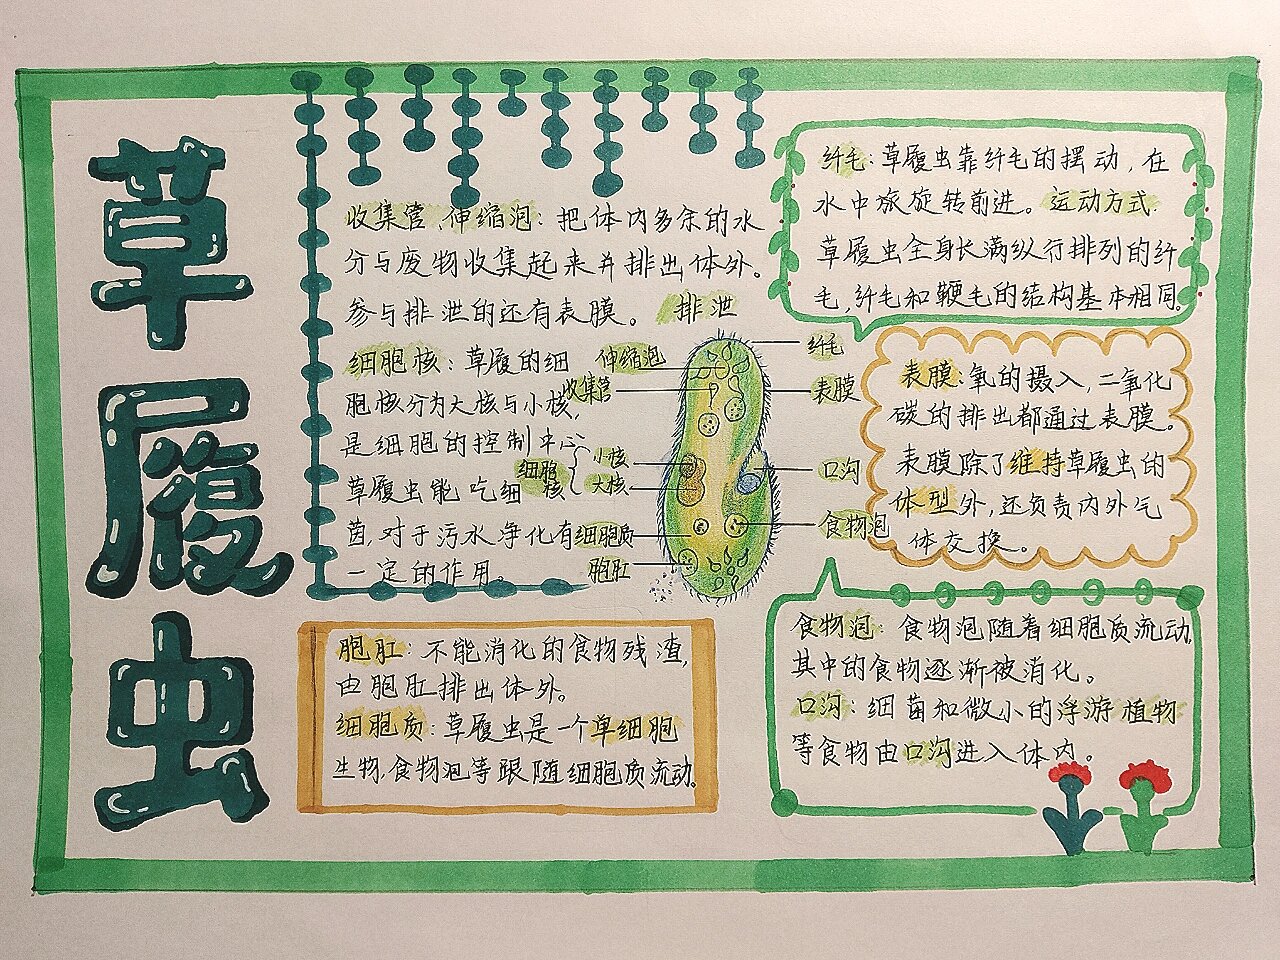 草履虫
收集管、伸缩泡：把体内多余的水
分与废物收集起来并排出体外。
参与排泄的还有表膜。 排泄
细胞核：草履的细
胞核分为大核与小核，
是细胞的控制中心
草履虫能吃细
菌，对于污水净化有
一定的作用。
伸缩泡
收集管
小核
细胞核
大核
细胞质
胞肛
纤毛
表膜
口沟
食物泡
纤毛：草履虫靠纤毛的摆动，在
水中旅旋转前进。运动方式.
草履虫全身长满纵行排列的纤
毛，纤毛和鞭毛的结构基本相同。
表膜：氧的摄入，二氧化
碳的排出都通过表膜。
表膜除了维持草履虫的
体型外，还负责内外气
体交换。
胞肛：不能消化的食物残渣，
由胞肛排出体外。
细胞质：草履虫是一个单细胞
生物，食物泡等跟随细胞质流动。
食物泡：食物泡随着细胞质流动，
其中的食物逐渐被消化。
口沟：细菌和微小的浮游植物
等食物由口沟进入体内。